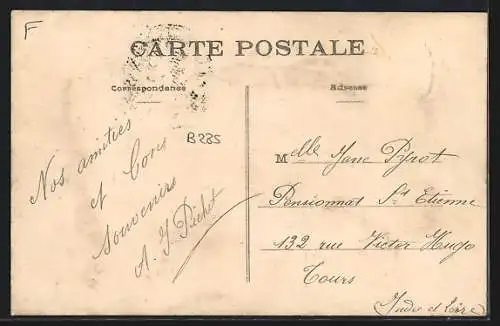 F
CARTE POSTALE
Correspondance
Adresse
B235
Nos amitiés
et Bons
souvenirs
A. J. Pichot
Mlle Jane Pyrot
Pensionnat St Etienne
132 rue Victor Hugo
Tours
(Indre et Loire)